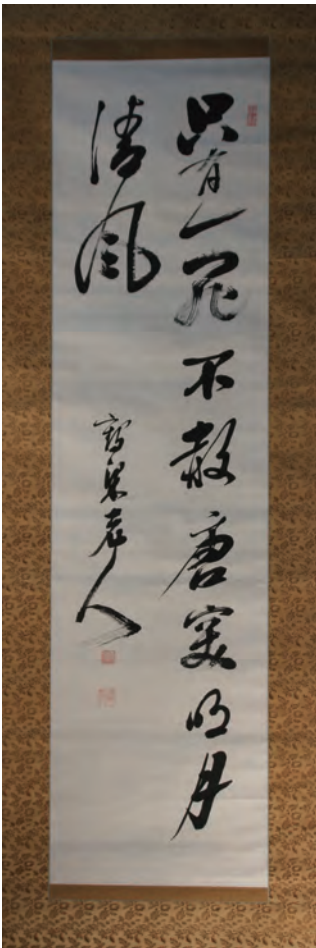 只有一罪不赦唐突明月
清風
鶴梁老人